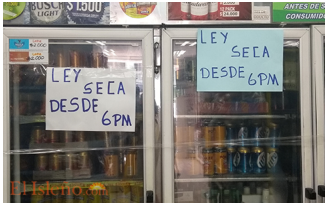 BUSCH $1500
ANTES DE
CONSUMID
LEY
SECA
DESDE
6PM
LEY
SECA
DESDE
6PM
El Isleño.com